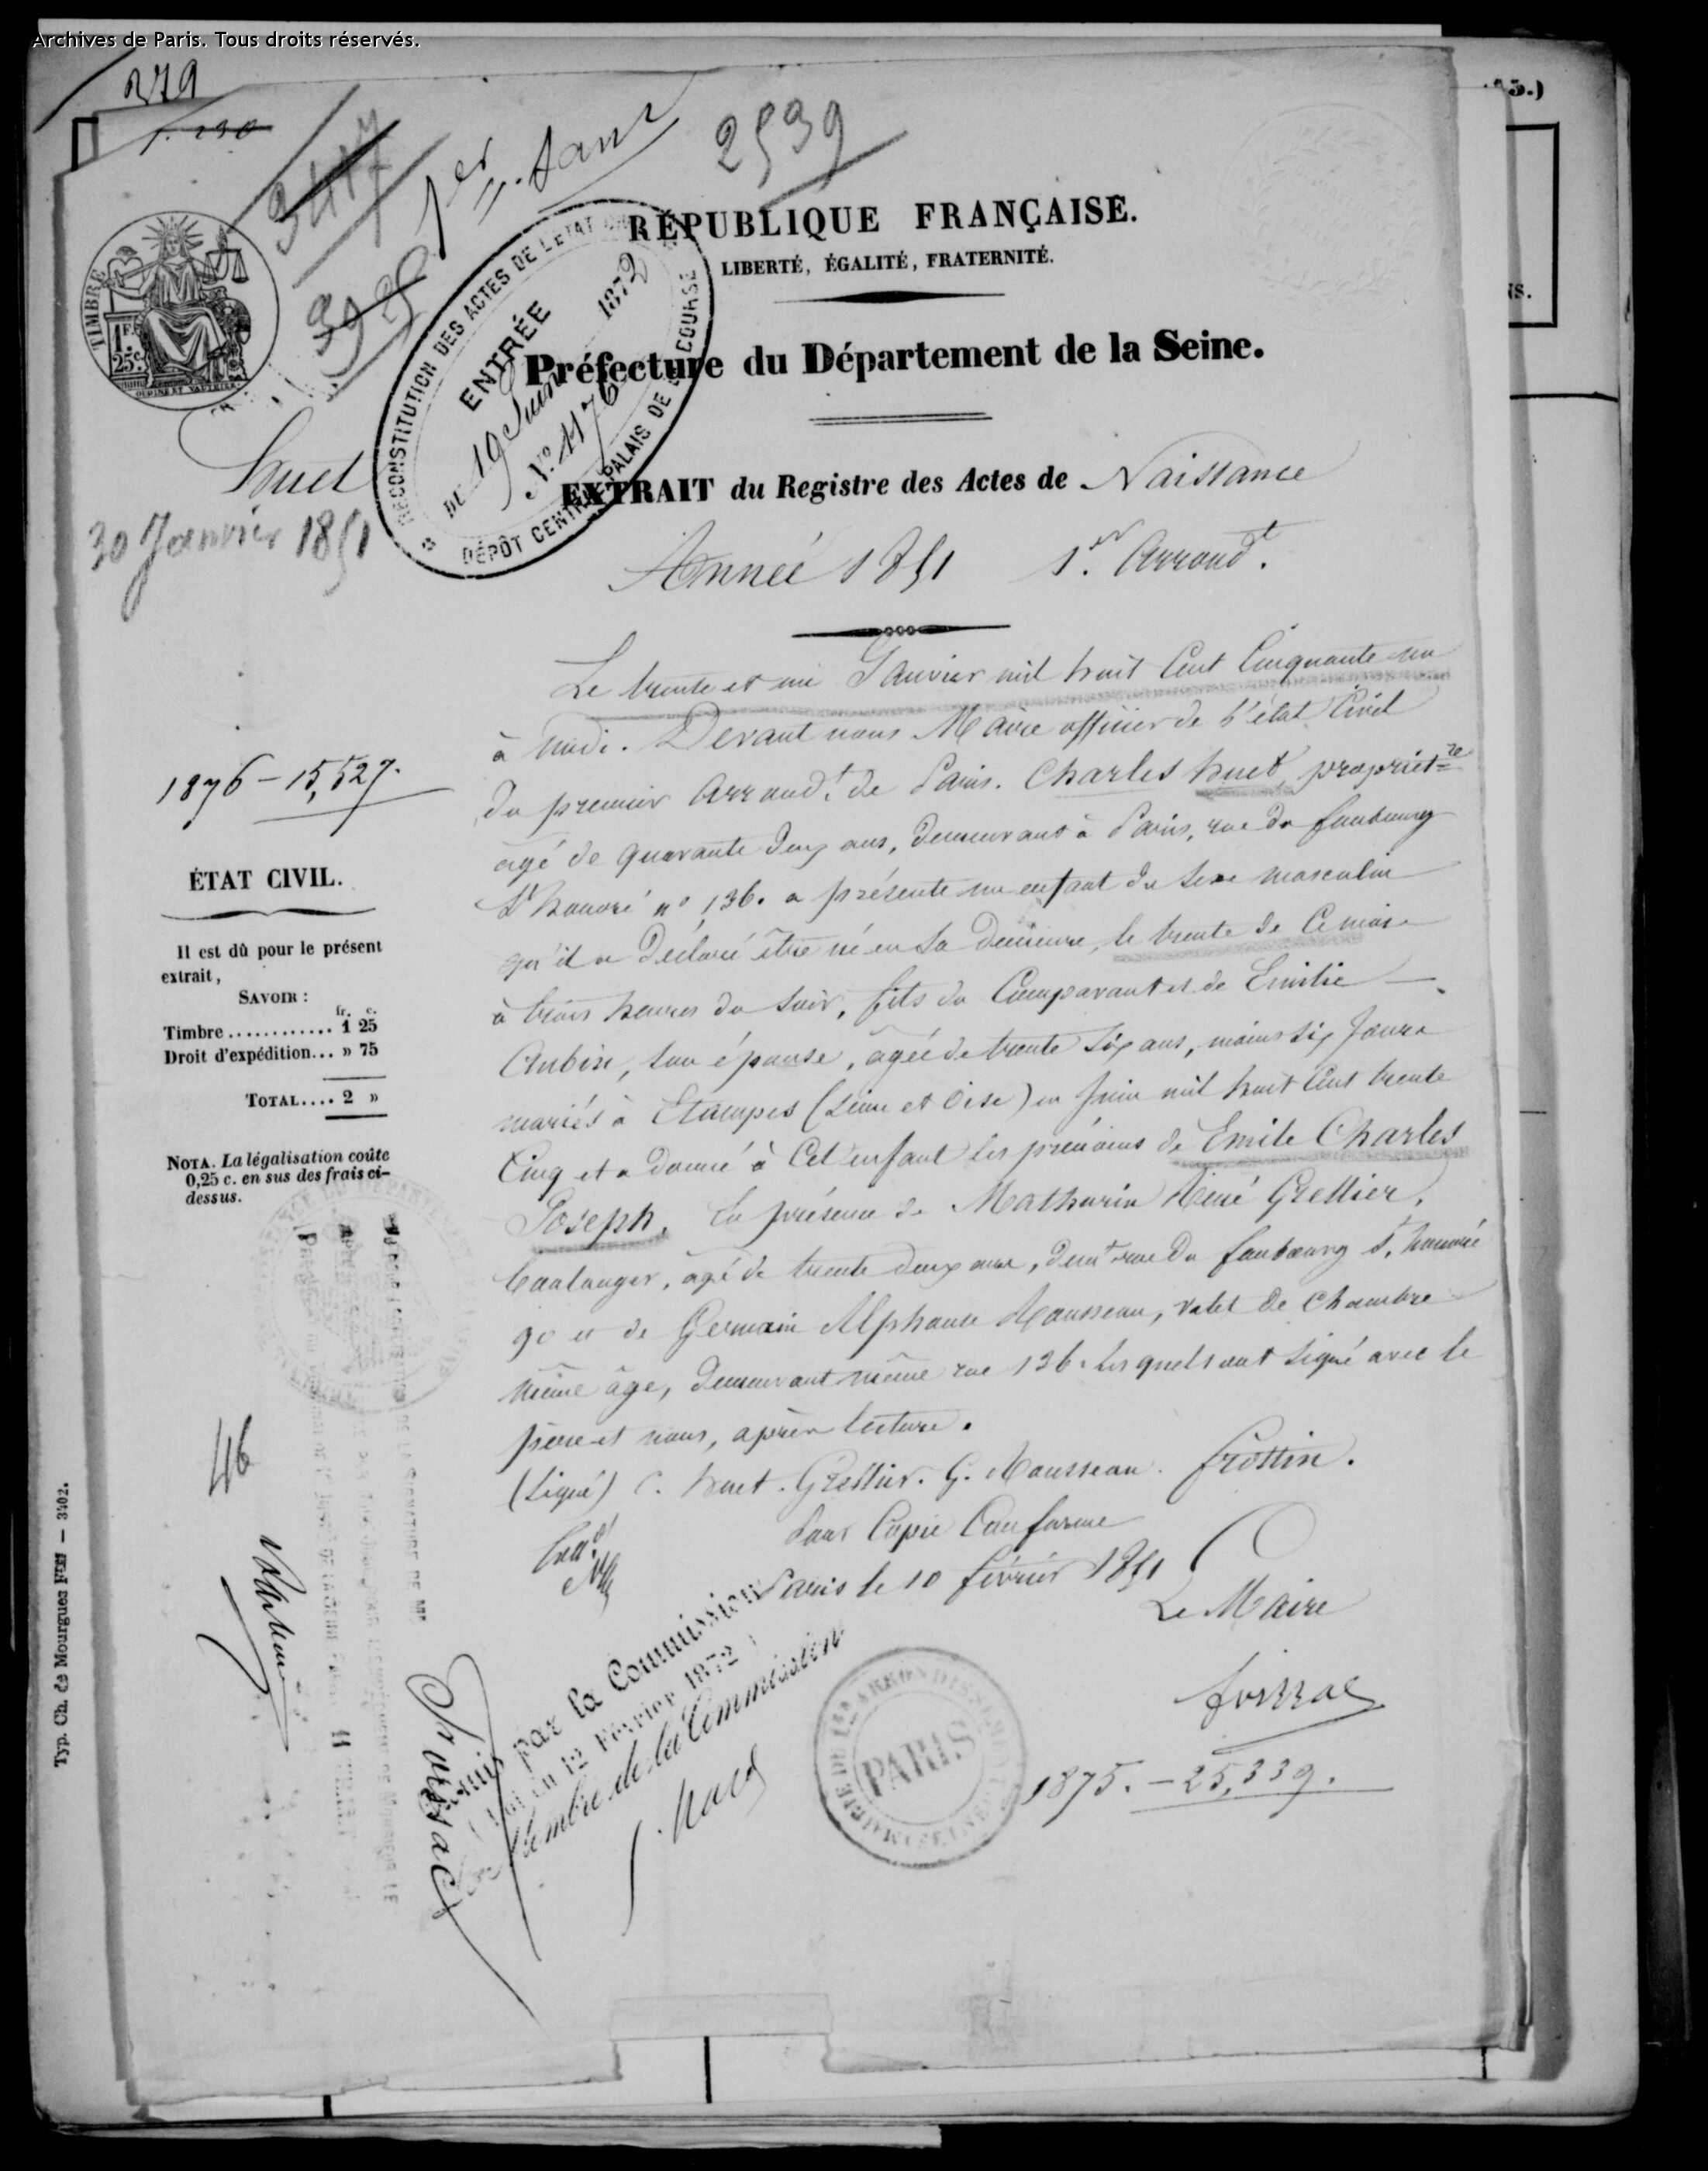 Archives de Paris. Tous droits réservés.
379
1.230
3417
3925
1er
2539
RÉPUBLIQUE FRANÇAISE.
LIBERTÉ, ÉGALITÉ, FRATERNITÉ.
TIMBRE
1 F.
25c.
OUDINÉ ET VAUTHIER
RECONSTITUTION DES ACTES DE L'ETAT
ENTRÉE
DU 19 Juin 1872
N° 1176
DÉPÔT CENTRAL PALAIS DE COURSE
Préfecture du Département de la Seine.
Huet
30 Janvier 1851
EXTRAIT du Registre des Actes de Naissance
Année 1851 1er Arrondt.
Le trente et un Janvier mil huit Cent Cinquante un
à midi. Devant nous Maire officier de l'état Civil
du premier Arrondt. de Paris. Charles huet, propriétre
agé de quarante deux ans, demeurant à Paris, rue du faubourg
St honoré no 136. a présenté un enfant du sexe masculin
qu'il a Déclaré être né en sa demeure, le trente de Ce mois
à trois heures du soir, fils du Comparant et de Emilie
Aubin, son épouse, agée de trente six ans, moins six jours
mariés à Etampes (Seine et Oise) en juin mil huit Cent trente
Cinq et a donné à Cet enfant les prénoms de Emile Charles
Joseph. En présence de Mathurin René Grellier,
boulanger, agé de trente deux ans, demt rue du faubourg St. honoré
90 et de Germain Alphonse Rousseau, valet de chambre
même âge, demeurant même rue 136. lesquels ont signé avec le
père et nous, après lecture.
(Signé) C. huet. Grellier. G. Rousseau. frottin.
Pour Copie Conforme
Paris le 10 février 1851
Le Maire
1876 – 15,527.
ÉTAT CIVIL.
Il est dû pour le présent
extrait,
SAVOIR :
fr. c.
Timbre ............ 1 25
Droit d'expédition... » 75
TOTAL.... 2 »
NOTA. La légalisation coûte
0,25 c. en sus des frais ci-
dessus.
46
Admis par la Commission
(Loi du 12 Février 1872)
Le Membre de la Commission
MAIRIE DU 1er ARRONDISSEMENT
PARIS
1875. – 25,339.
DE LA SIGNATURE DE Mr
Typ. Ch. de Mourgues Fres — 3402.